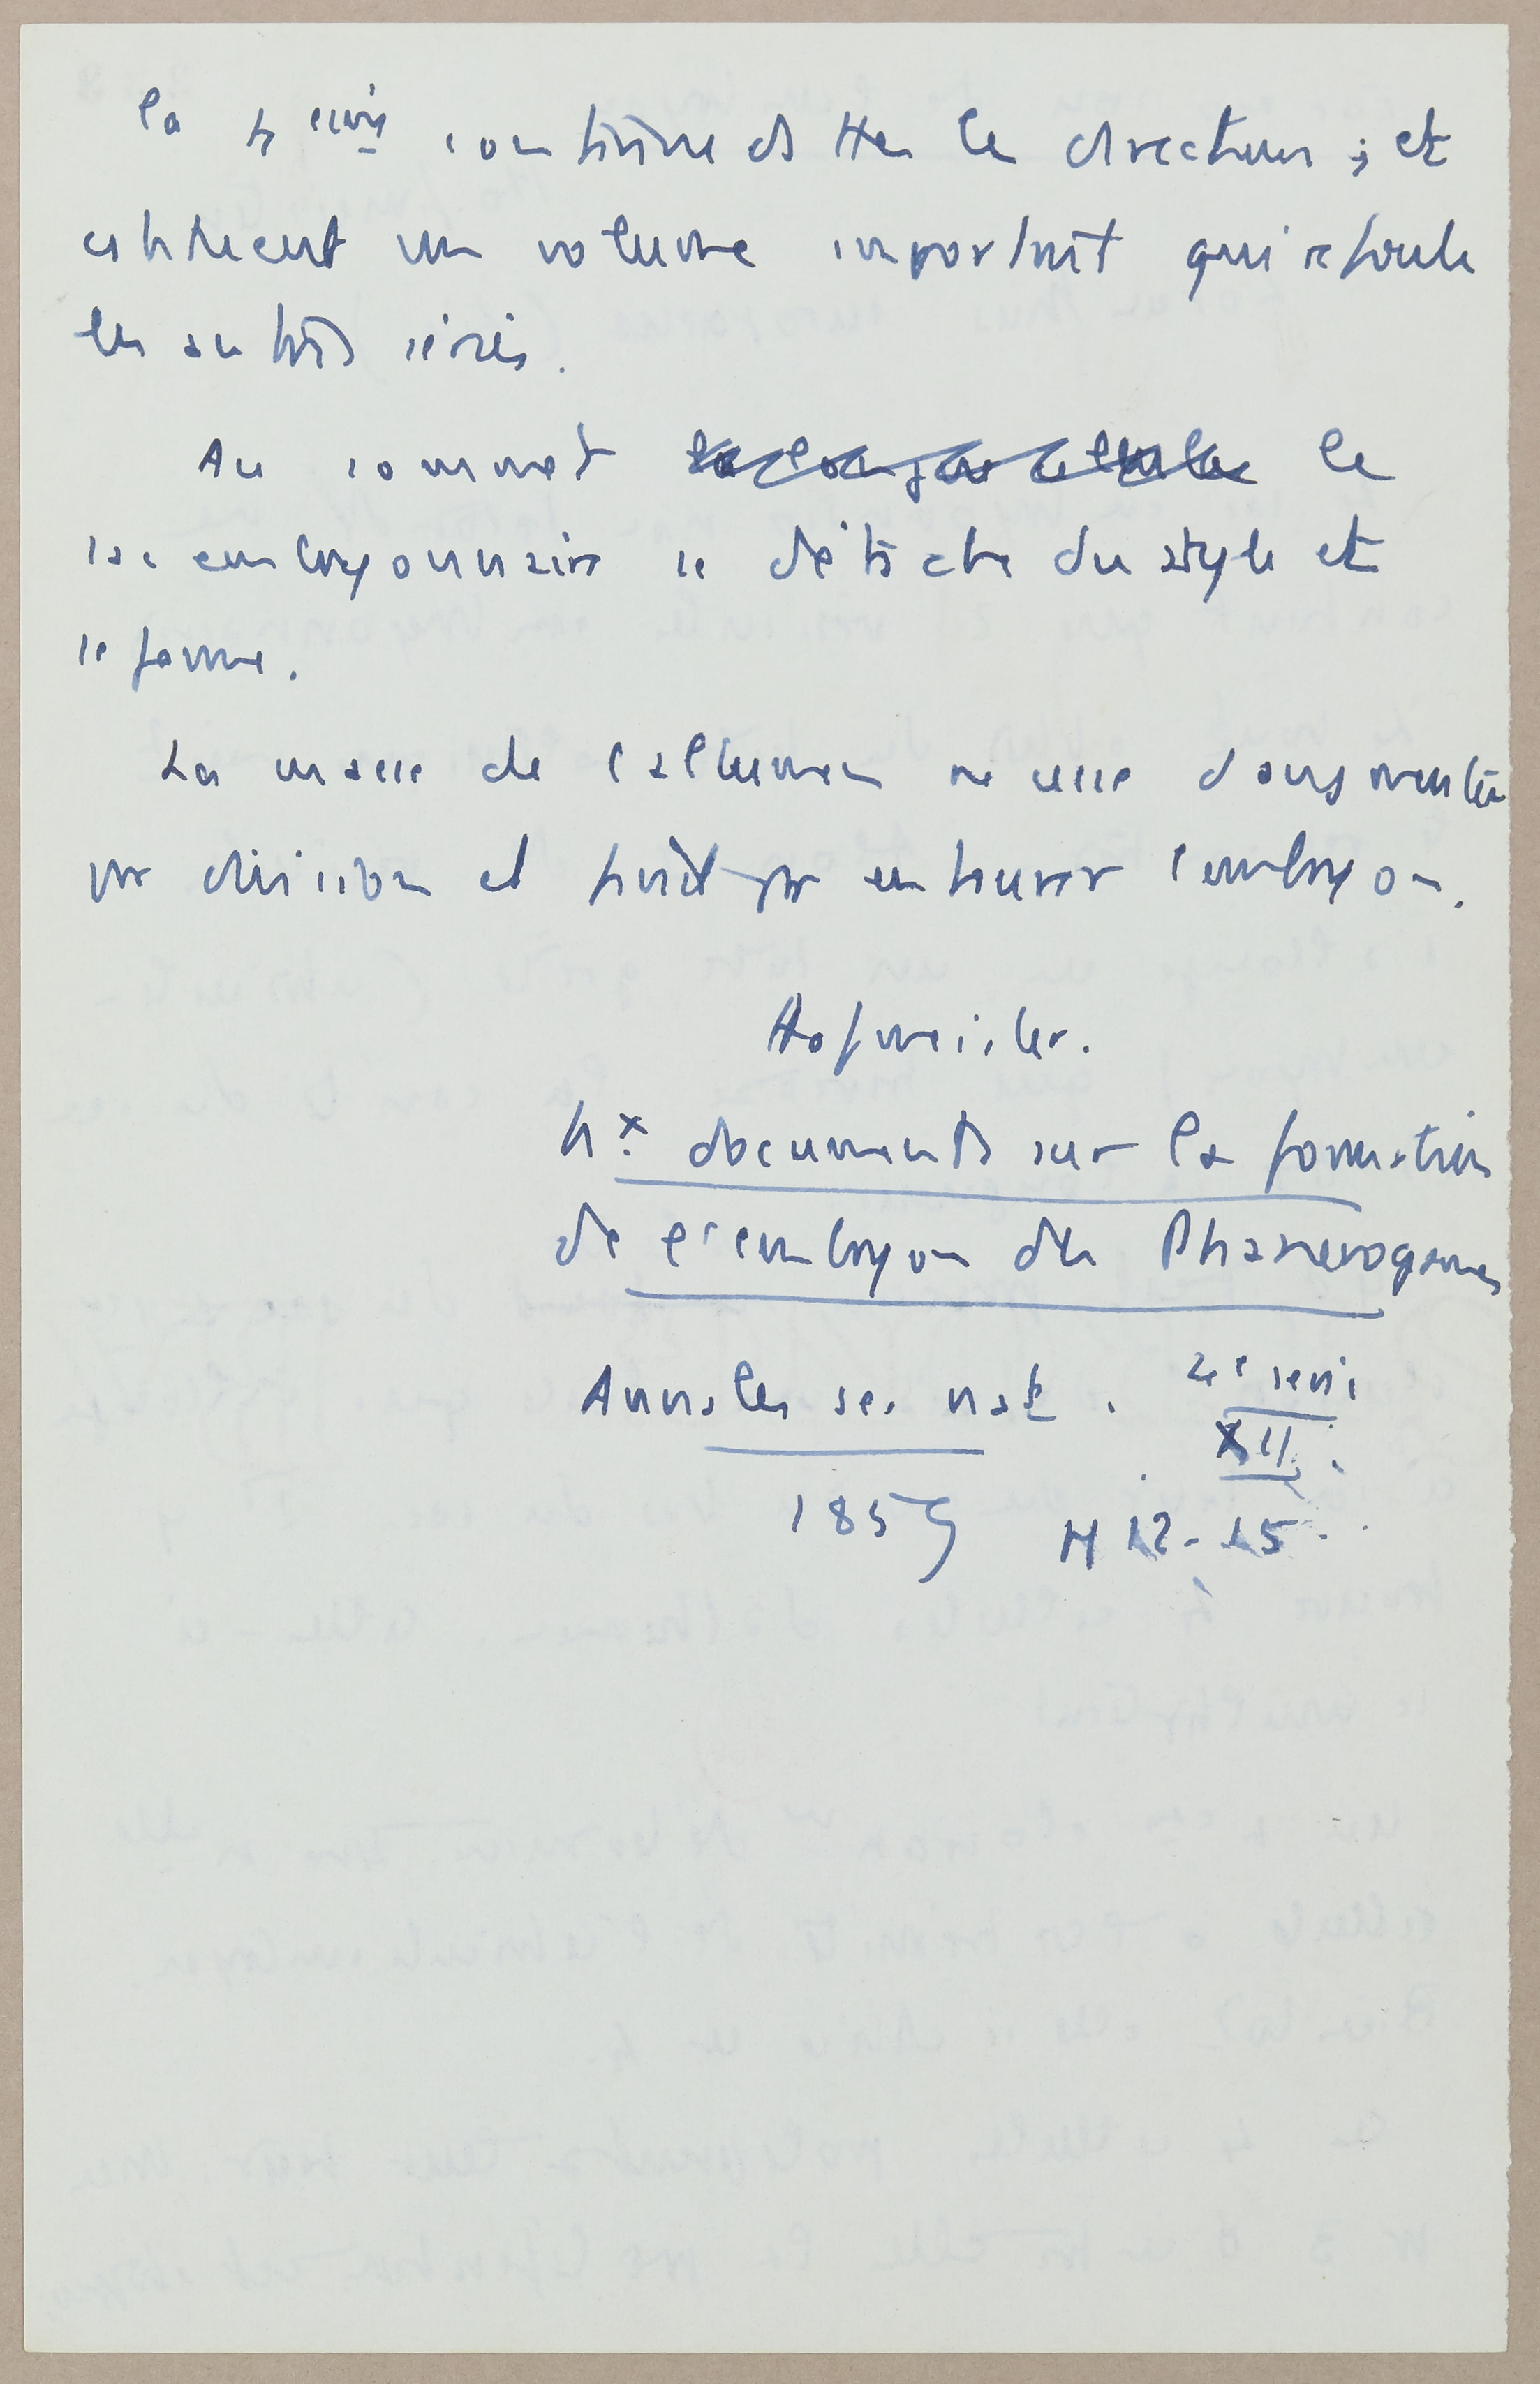 la
continue ds ttes les directions ; et
un volume important qui refoule
les autres séries.
Au sommet le
sac embryonnaire se détache du style et
se ferme.
La masse de l'albumen ne cesse d'augmenter
par division et finit par entourer l'embryon.
Hofmeister.
Nx documents sur la formation
de l'embryon des Phanerogames
Annales sc. nat. 4e serie
XII.
1859 12-15.